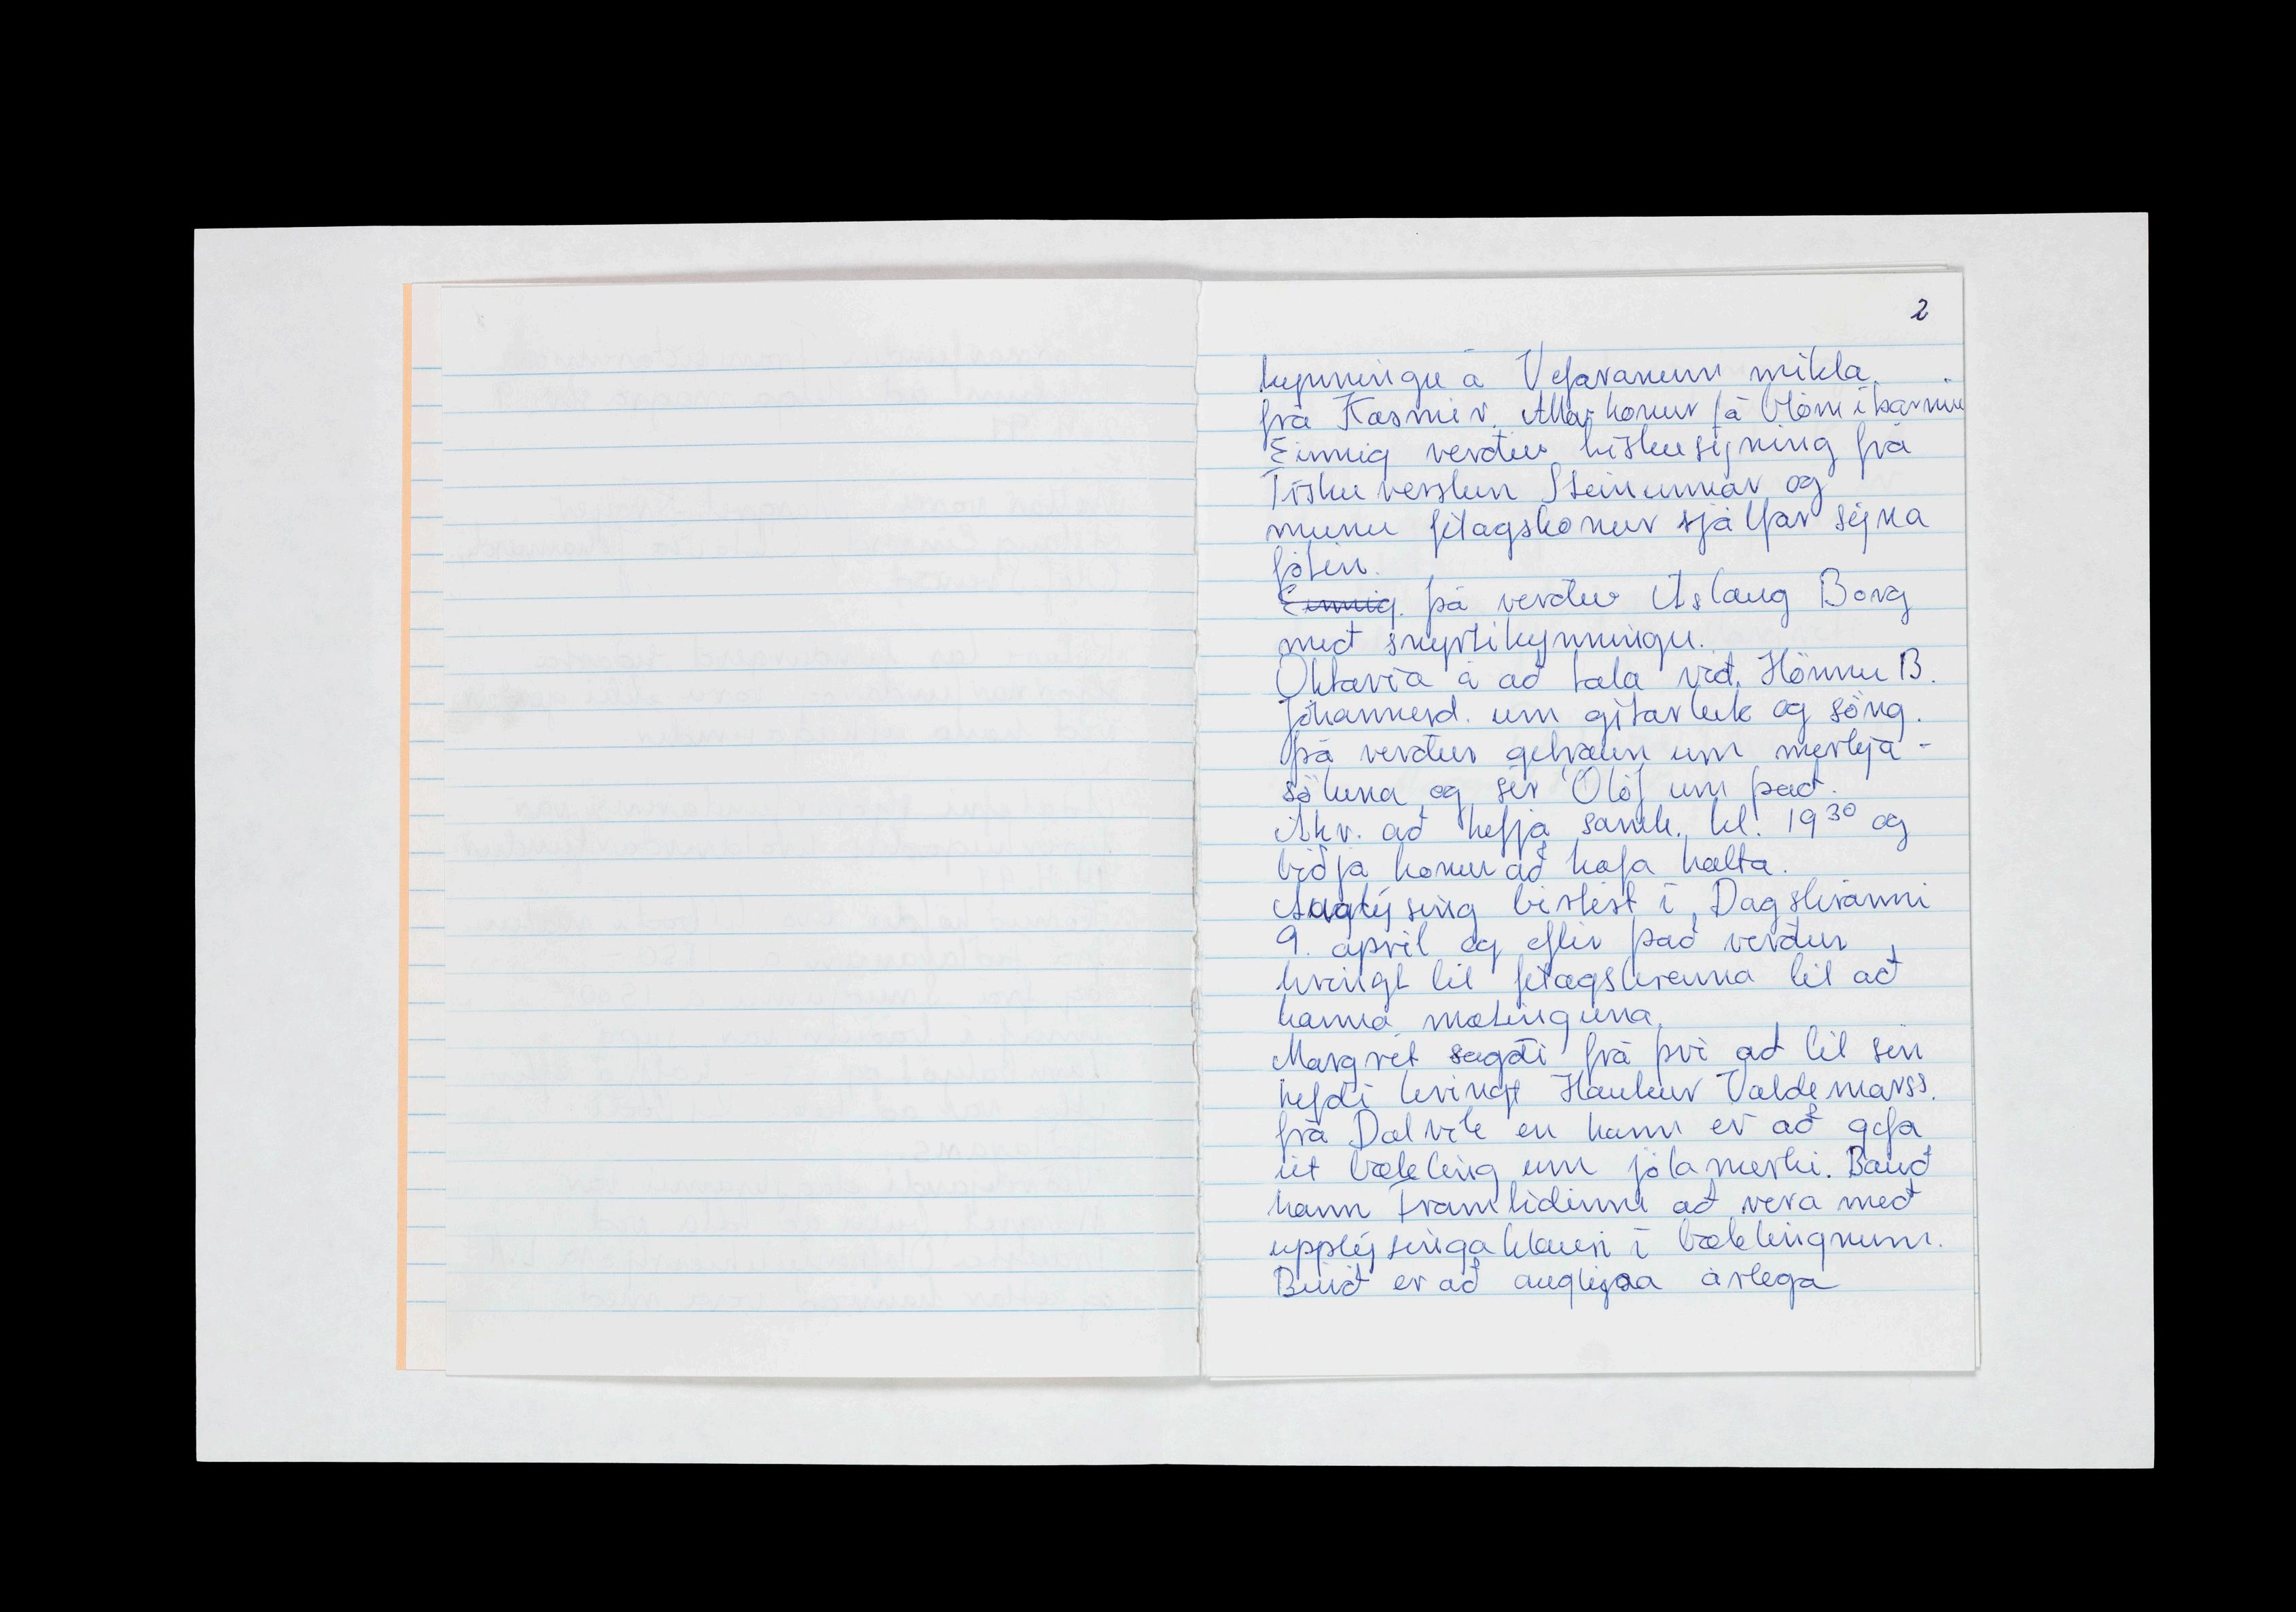 2
kynningu á Vefaranum mikla
frá Kasmír. Allar konur fá blóm í barminn
Einnig verður tískusýning frá
Tískuverslun Steinunnar og
munu félagskonur sjálfar sýna
fötin.
Einnig. þá verður Áslaug Borg
með snyrtikynningu.
Oktavía á að tala við Hönnu B.
Jóhannesd. um gítarleik og söng.
þá verður getraun um merkja-
söluna og sér Ólöf um það.
Ákv. að hefja samk. kl. 19³⁰ og
biðja konur að hafa hatta.
Auglýsing birtist í Dagskránni
9. apríl og eftir það verður
hringt til félagskvenna til að
kanna mætinguna.
Margrét sagði frá því að til sín
hefði hringt Haukur Valdemarss.
frá Dalvík en hann er að gefa
út bækling um jólamerki. Bauð
hann Framtíðinni að vera með
upplýsingaklausu í bæklingnum.
Búið er að auglýsa árlega